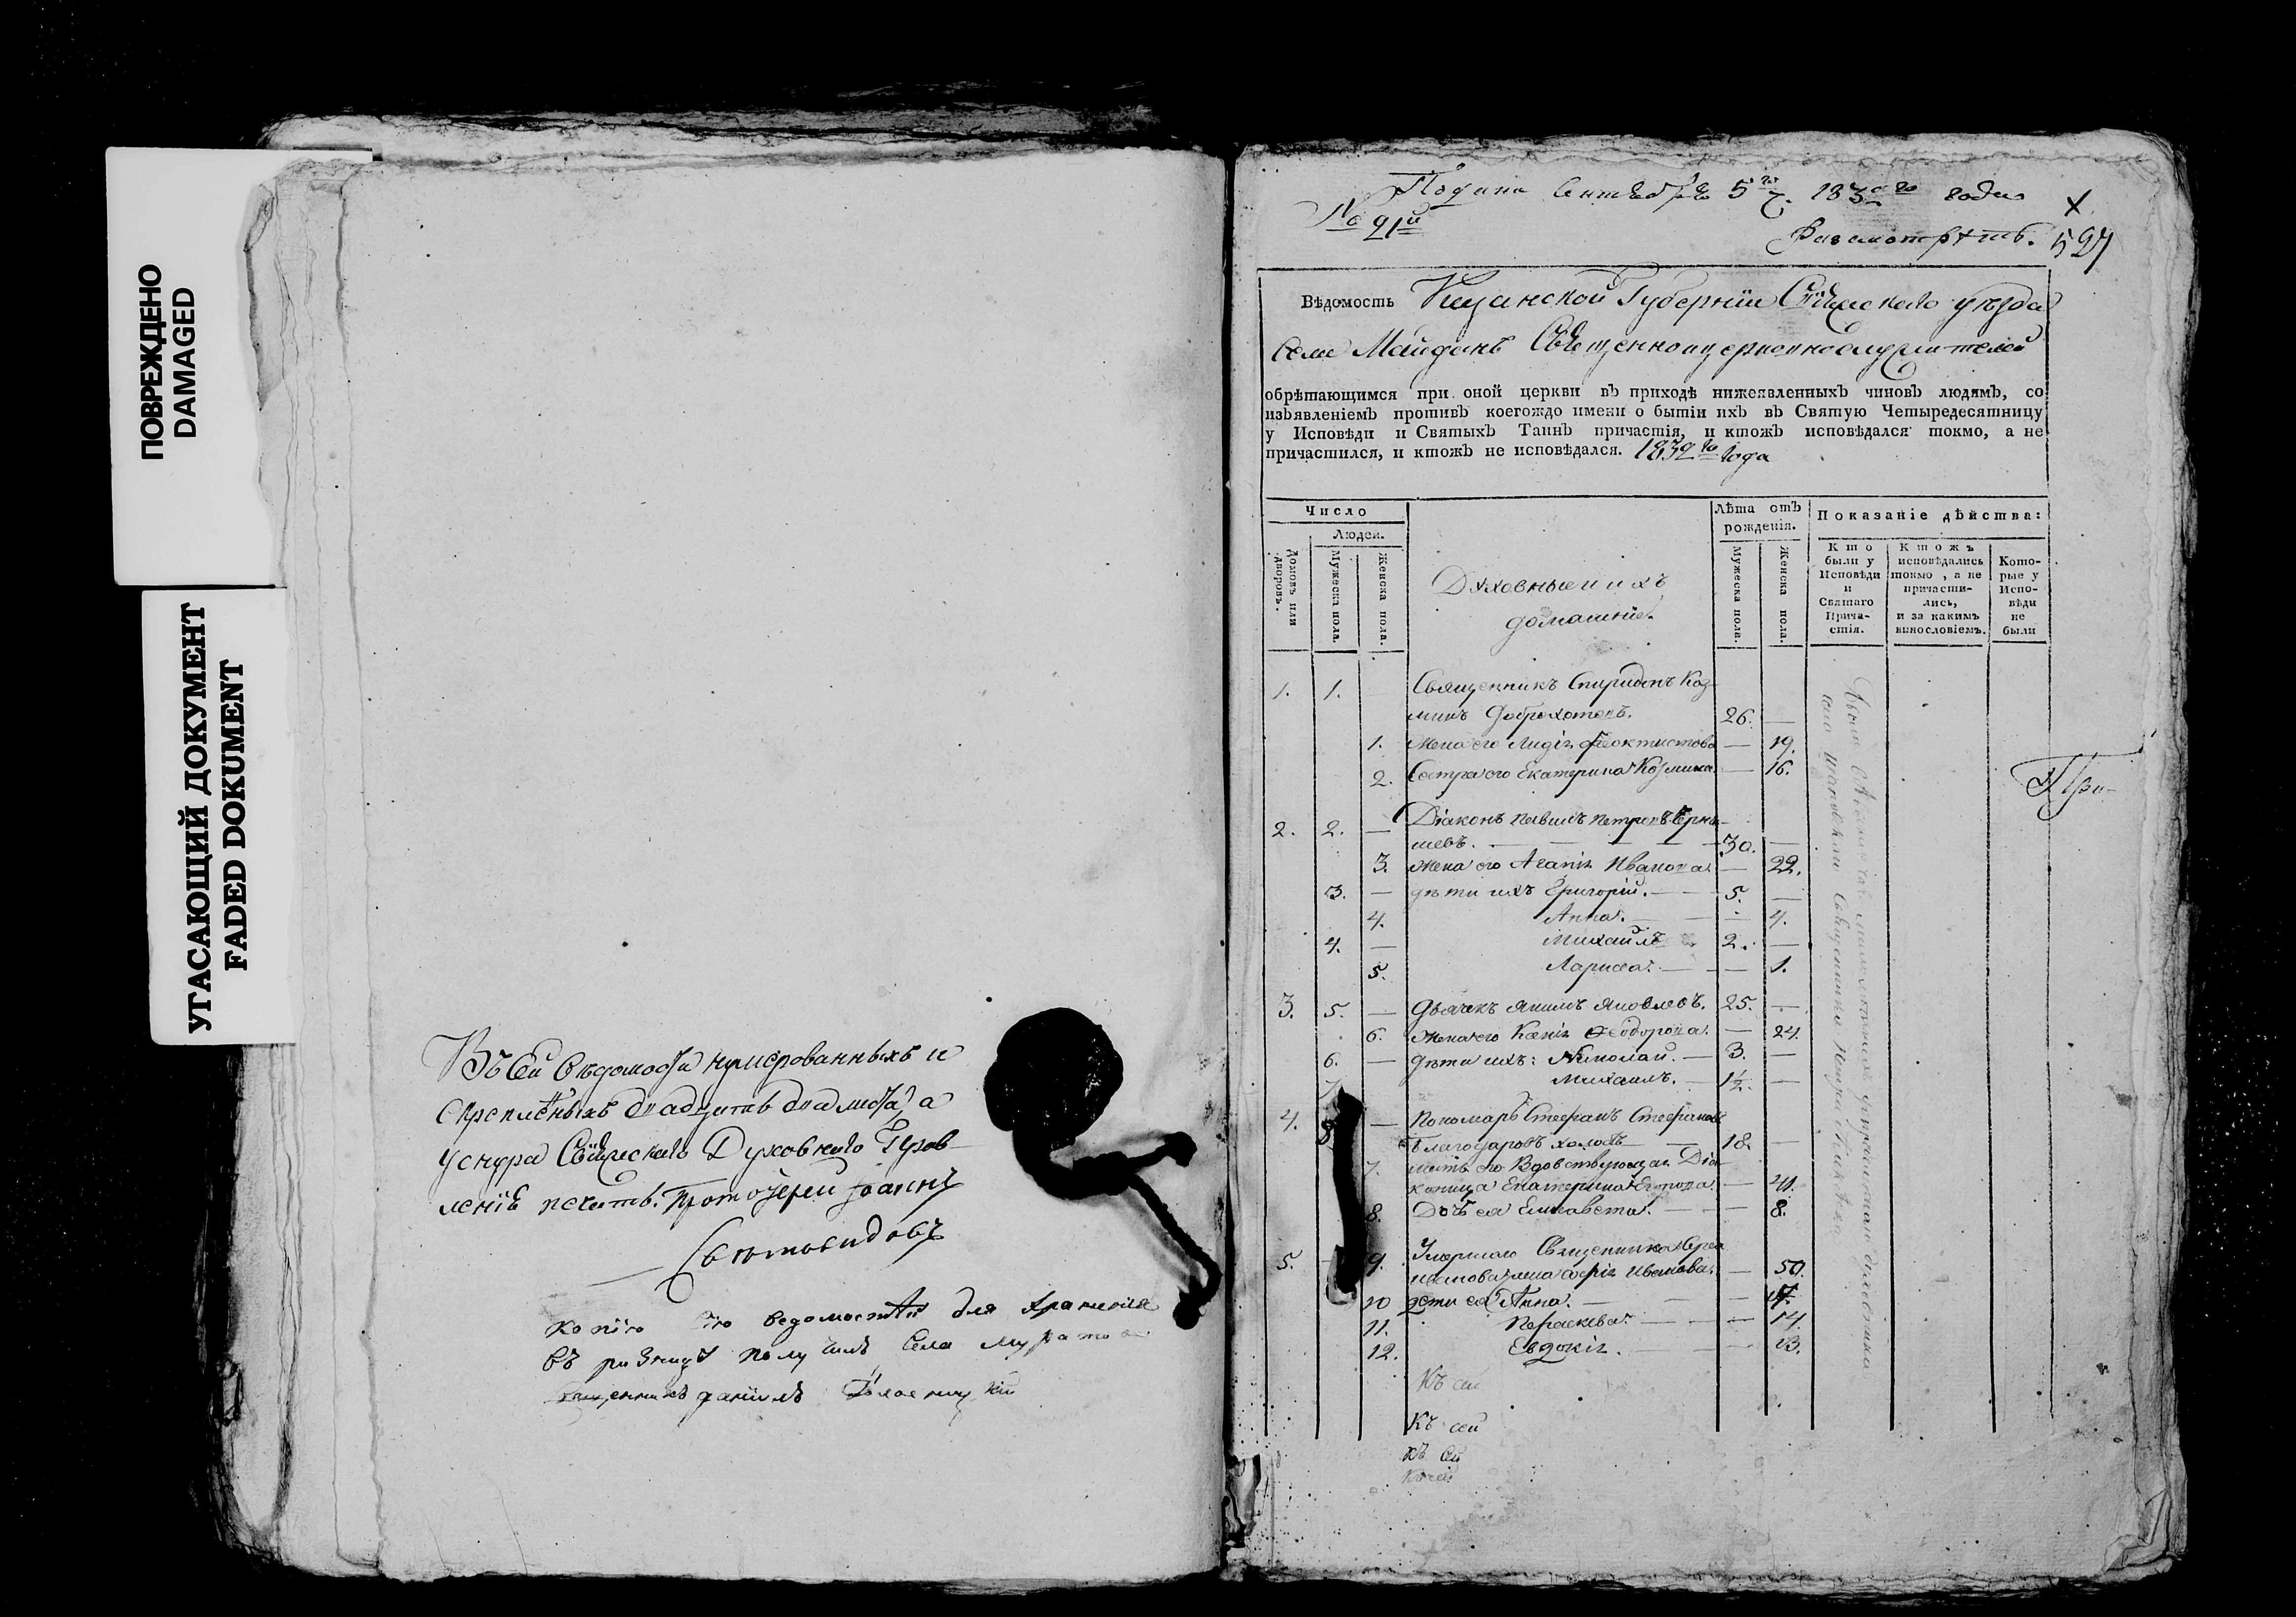 ПОВРЕЖДЕНО
DAMAGED
УГАСАЮЩИЙ ДОКУМЕНТ
FADED DOKUMENT
Въ сей ведомости нумерованныхъ и
скрепленныхъ двадцать два листа, а
у снура Свіяжскаго Духовнаго Прав-
ленія печать. Протоіерей Іоаннъ
копію сію ведомости для храненія
въ ризницу получилъ села
священникъ Даніилъ
Подана Сентября 5го ч. 183 го года
№ 21й
Разсмотрѣть.
X
527
Вѣдомость Казанской Губерніи Свіяжскаго уѣзда
села Майданъ Священноцерковнослужителей
обрѣтающимся при оной церкви въ приходѣ нижеявленныхъ чиновъ людямъ, со
изъявленіемъ противъ коегождо имени о бытіи ихъ въ Святую Четыредесятницу
у Исповѣди и Святыхъ Таинъ причастія, и ктожъ исповѣдался токмо, а не
причастился, и ктожъ не исповѣдался. 1832го года
Число
Людей.
Домовъ или дворовъ.
Мужеска пола.
Женска пола.
Духовные и ихъ
домашніе.
Лѣта отъ рожденія.
Мужеска пола.
Женска пола.
Показаніе дѣйства:
Кто были у Исповѣди и Святаго Прича-стія.
Ктожъ исповѣдались токмо, а не причасти-лись, и за какимъ винословіемъ.
Кото-рые у Испо-вѣди не были
1. 1. Священникъ Спиридонъ Коз-
минъ Доброхотовъ. 26. —
1. Жена его Лидія Феоктистова — 19.
2. Сестра его Екатерина Козмина. — 16.
2. 2. — Діаконъ Павелъ Петровъ
шевъ. — 30. —
3. Жена его Агапія Иванова. — 22.
3. — дѣти ихъ Григорій. — 5. —
4. Анна. — 4.
4. — Михаилъ 2. —
5. Лариса. — 1.
3. 5. — Дьячекъ Якимъ Яковлевъ. 25. —
6. Жена его Ксенія Феодорова. — 24.
6. — дѣти ихъ: Николай. — 3. —
7. Михаилъ. — 1½. —
4. 8. — Пономарь Стефанъ Стефановъ
Благодаровъ холостъ — 18. —
7. мать его Вдовствующая Діа-
коница Екатерина Егорова. — 41.
8. Дочь ея Елисавета. — 8.
5. — 9. Умершаго Священника
Иванова жена Иванова. — 50.
10 дети ея Анна. —
11. Параскева. — 14.
12. Евдокія. — 13.
Къ сей
Къ сей
Къ сей
Къ сей
При-